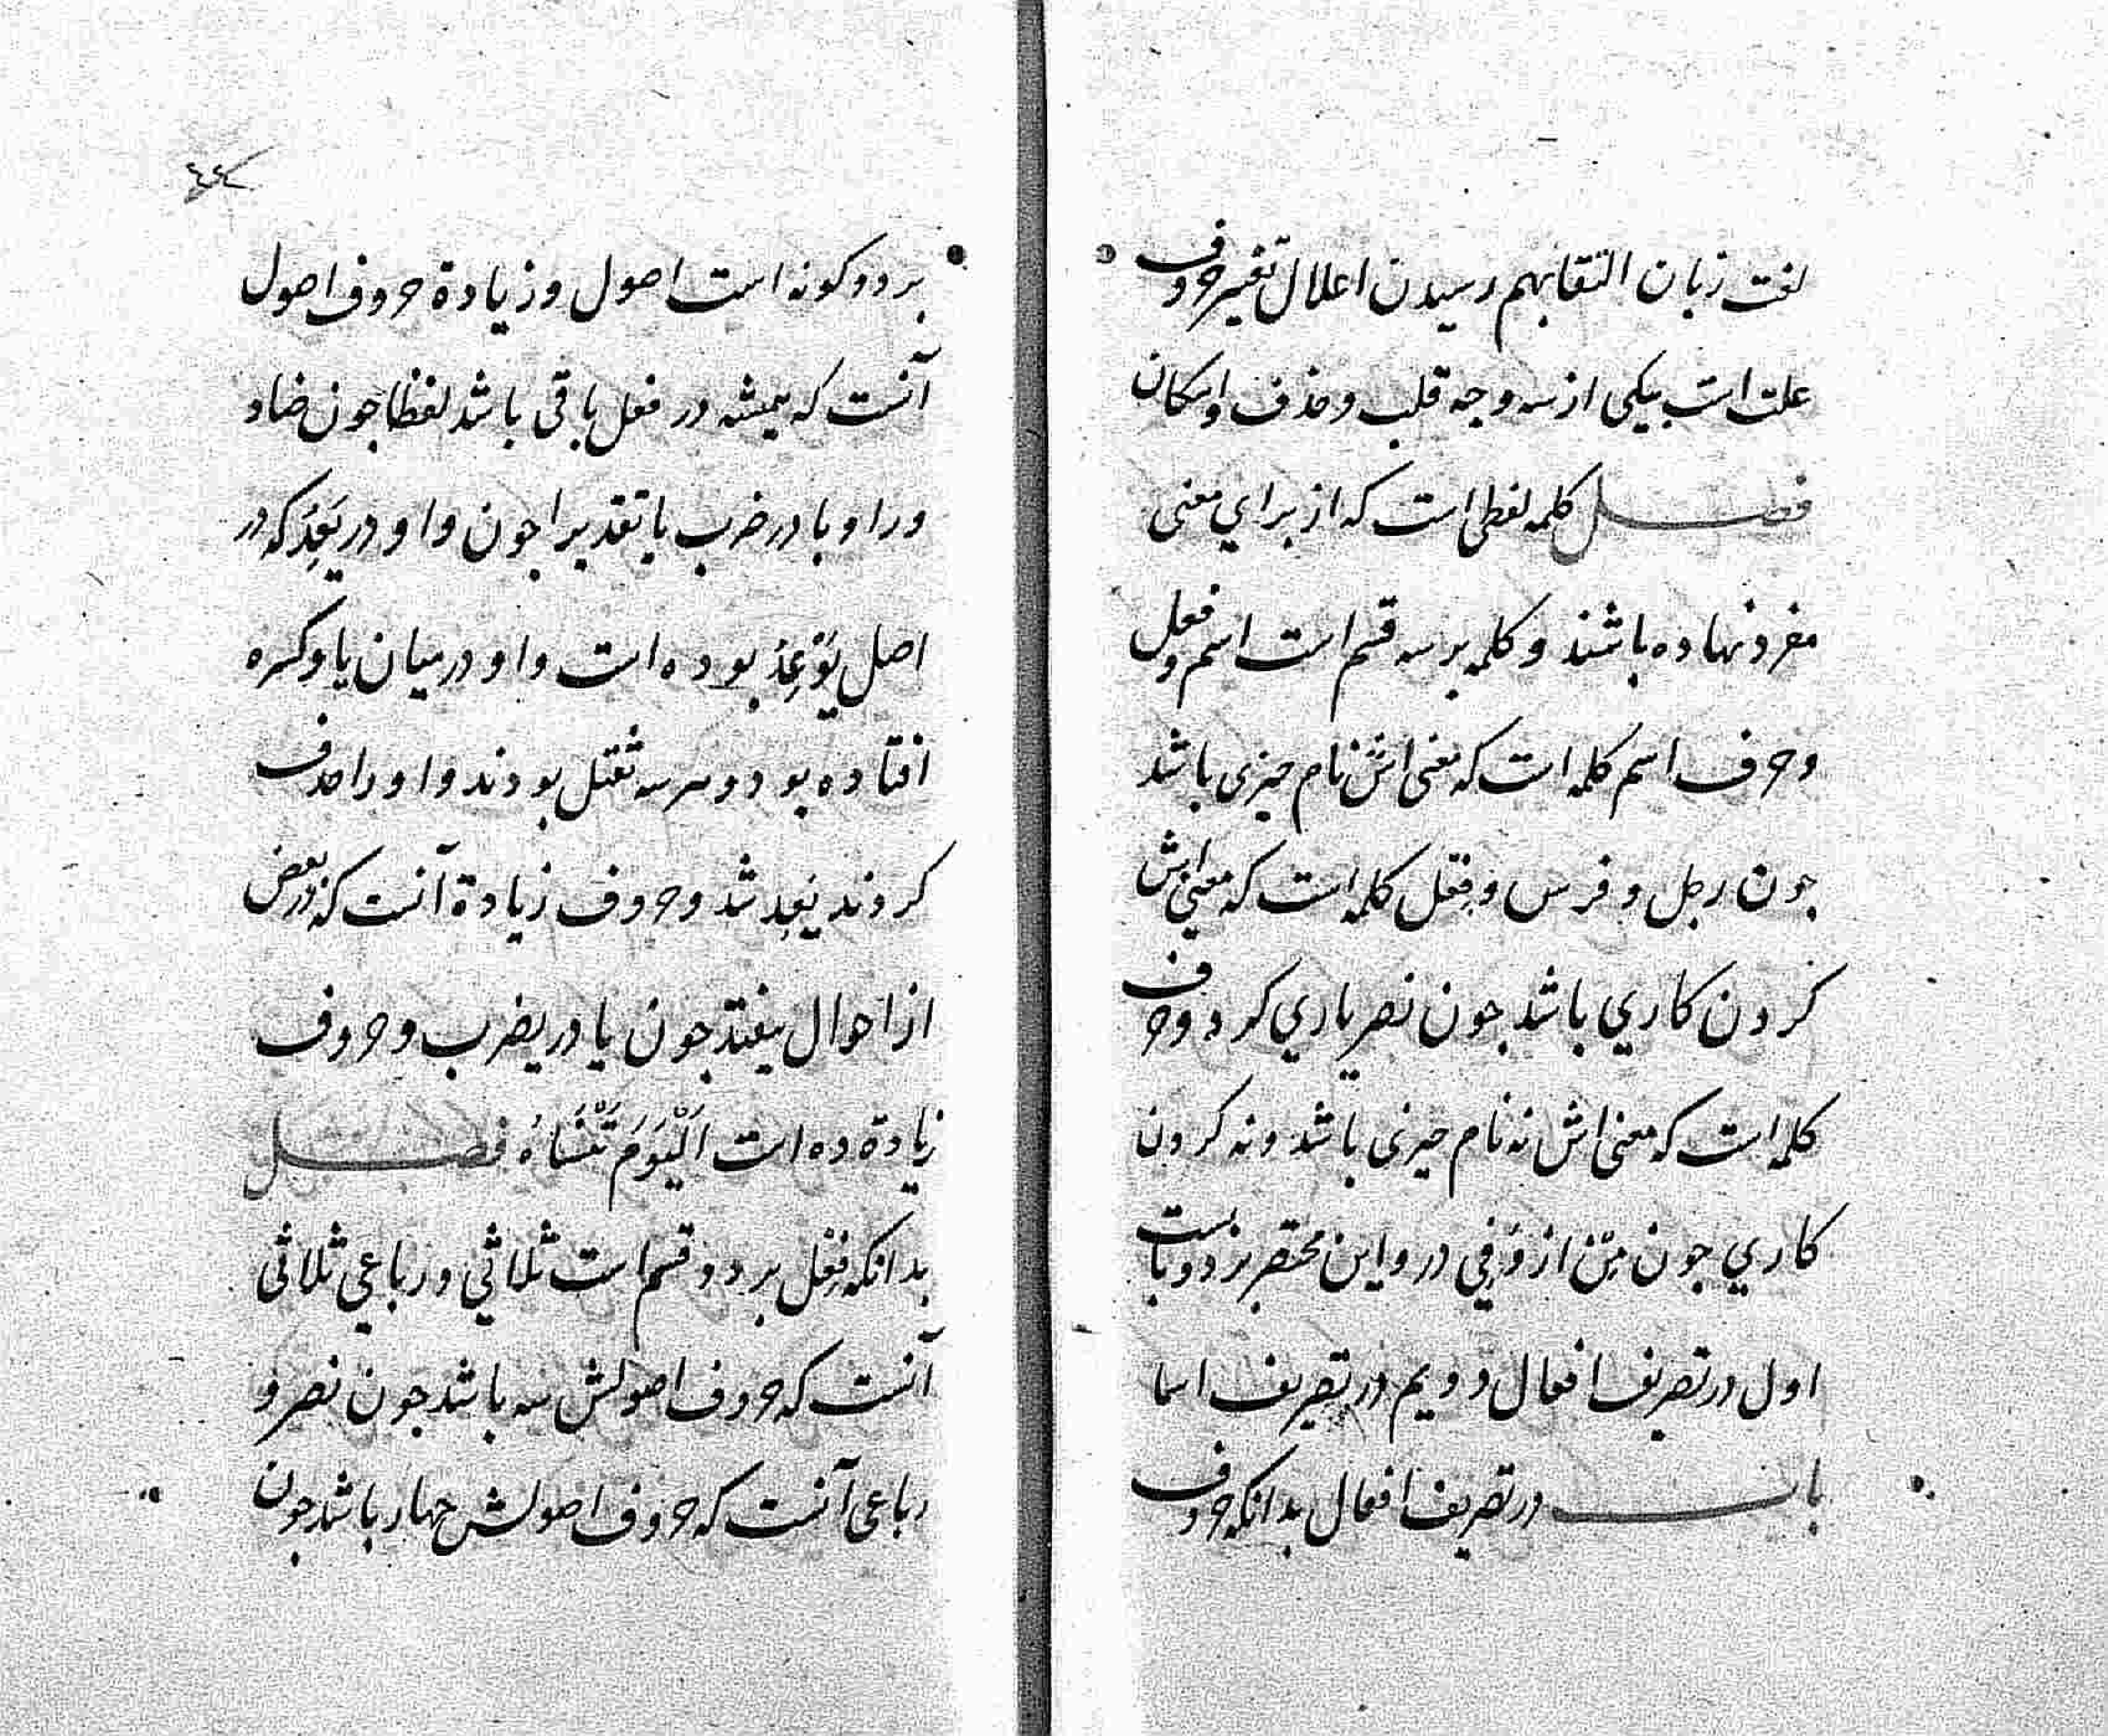 لغت زبان التقا بهم رسیدن اعلال تغییر حروف
علت است بیکی از سه وجه قلب و حذف و امکان
فصل کلمه لفظی است که از برای معنی
مفرد نهاده باشند و کلمه بر سه قسم است اسم و فعل
و حرف اسم کلمه است که معنی اش نام چیزی باشد
جون رجل و فرس و فعل کلمه است که معنی اش
کردن کاري باشد جون نصر یاري کرد و حرف
کلمه است که معنی اش نه نام چیزی باشد و نه کردن
کاري جون مِن از وَ فِي در و این مختصر بر دو بابست
اول در تصریف افعال دویم در تصریف اسما
باب در تصریف افعال بدانکه حروف
٤٤
بر دو کونه است اصول و زیادة حروف اصول
آنست که همیشه در فعل باقی باشد لفظا جون ضاد
و را و با در ضرب یا تقدیرا جون واو در یَعِدُ که در
اصل یَوْعِدُ بوده است واو در میان یا و کسره
افتاده بود و هر سه ثقیل بودند واو را حذف
کردند یعِد شد و حروف زیادة آنست که در بعض
از احوال بیفتد جون یا در یضرب و حروف
زیادة ده است اَلْیَوْمَ تَنْسَاهُ فصل
بدانکه فعل بر دو قسم است ثلاثي و رباعي ثلاثی
آنست که حروف اصولش سه باشد جون نصر و
رباعی آنست که حروف اصولش چهار باشد جون